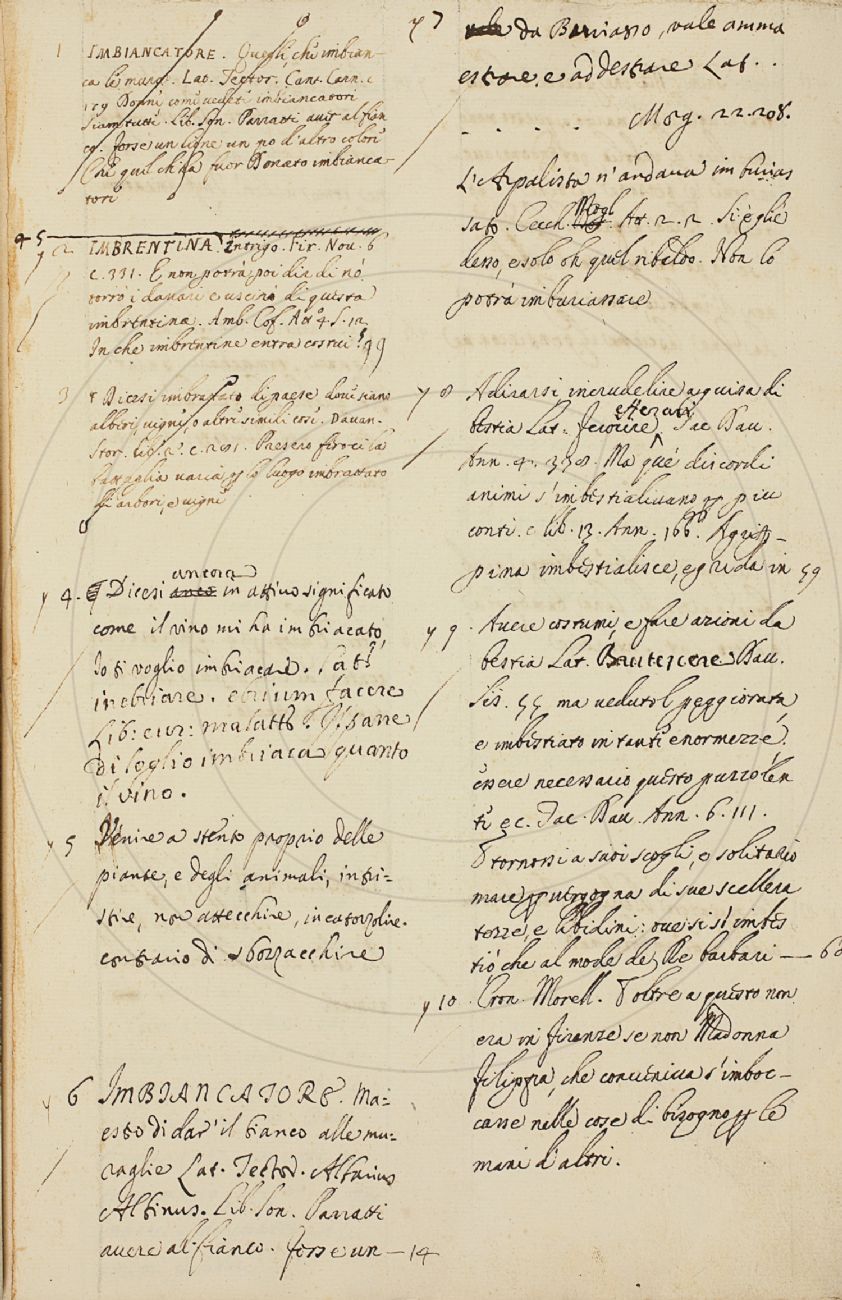 1 IMBIANCATORE. Quegli, chi imbian-
ca le mura. Lat. Tector. Cant. Carn. c
179 Donni come vedete imbiancatori
Siam tutti. Lib. Son. Parratti aver al fian
co. forse un
Che quel ch'ha fuor Donato imbianca-
tori
45
y 2 IMBRENTINA. Intrigo. Fir. Nov. 6
c. 331. E non potrà poi dir di nò
torrò i danari e uscirò di questa
imbrentina. Amb. Cof. At. 4. S. 12
In che imbrentine entra costui? 49
3 Dicesi imbrattato di paese dove siano
alberi, vigne, o altri simili cosi. Davan.
Stor. lib. 2. c. 291. Pasero feroci la
battaglia varia, p lo luogo imbrattato
di arbori, e vigne
y 4. Dicesi ancora in attivo significato
come il vino mi ha imbriacato,
Io ti voglio imbriacare. Lat.
inebriare. ebrium facere
Lib: cur: malatt: Il pane
di loglio imbriaca quanto
il vino.
y 5 Venire a stento proprio delle
piante, e degli animali, intri=
stire, non attecchire, incatorzolire.
contrario di sbozzacchire
y 6 IMBIANCATORE. Ma=
estro di dar' il bianco alle mu=
raglie Lat. Tector. Albarius
Albinus. Lib. Son. Parratti
avere al fianco. forse un — 14
y 7 da Barciasso, vale amma
estrare, e addestrare Lat. . .
. . . . . Morg. 22. 208.
L'Apalista n'andava imburias
sato. Cecch. Mogl. At. 2. 2. Si è gli è
desso, e solo oh quel ribaldo. Non lo
potrà imburiassare
y 8 Adirarsi incrudelire a guisa di
bestia Lat. ferocire, efferari Tac Dav.
Ann. 4. 338. Ma què discordi
animi s'imbestialivano p piu
conti. e lib. 13. Ann. 166. Agrip-
pina imbestialisce, e grida in 59
y 9. Avere costumi, e fare azioni da
bestia Lat. Brutescere Dav.
Sis. 55 ma vedutol peggiorata
e imbestiato in tanti enormezze.
essere necessario questo puzzolen
te &c. Tac. Dav. Ann. 6. 111.
Tornossi a suoi scogli, e solitario
mare p vergogna di sue scellera
tezze, e libidini: ove si sì imbes
tiò che al modo delle barbari — 60
y 10 Cron. Morell. E oltre a questo non
era in firenze se non Madonna
filippa, che conveniva s'imboc-
casse nelle cose di bisogno p le
mani d'altri.